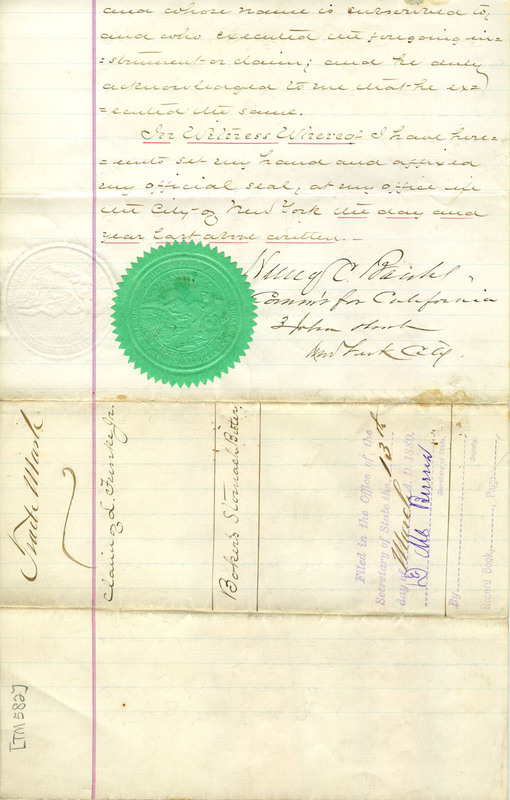 and whose name is subscribed to,
and who executed the foregoing in=
=strument or claim; and he duly
acknowledged to me that he ex=
=ecuted the same.
In Witness Whereof I have here=
=unto set my hand and affixed
my official seal, at my office in
the City of New York the day and
year last above written.
C. Banks
Comm's for California
3 John Street
New York City.
Trade Mark
Claim of L. Funke Jr.
Boker's Stomach Bitter
Filed in the Office of the
Secretary of State the 13th
day of March A.D. 1880.
D M Burns
Secretary of State
By
Deputy.
Record Book, Page
[TM 582]